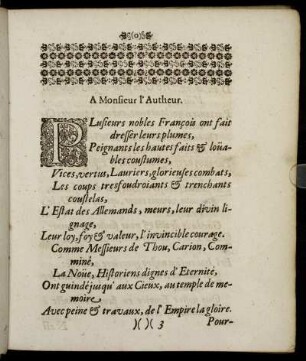 A Monsieur l'Autheur.
PLusieurs nobles François ont fait
dresser leurs plumes,
Peignants les hautes faits & loüa-
bles coustumes,
Vices, vertus, Lauriers, glorieuses combats,
Les coups tresfoudroiants & trenchants
coustelas,
L'Estat des Allemands, meurs, leur divin li-
gnage,
Leur loy, foy & valeur, l'invincible courage.
Comme Messieurs de Thou, Carion, Com-
miné,
La Noüe, Historiens dignes d'Eternité,
Ont guindé jusqu'aux Cieux, au temple de me-
moire
Avec peine & travaux, de l'Empire la gloire.
)( )( 3
Pour-